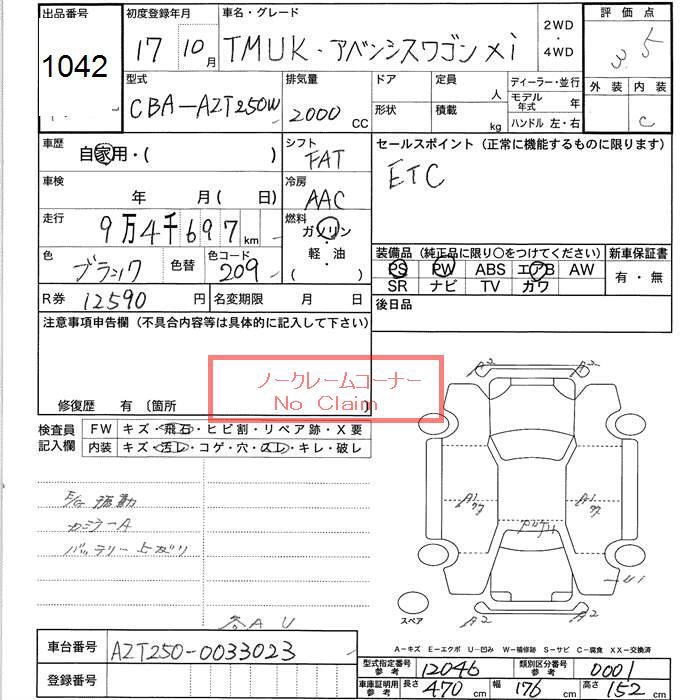 出品番号
1042
初度登録年月
17 10 月
車名・グレード
TMUK・アベンシスワゴン xi
2WD
・
4WD
評価点
3.5
外装 内装
C
型式
CBA-AZT250W
排気量
2000 CC
ドア
形状
定員 人
積載 kg
ディーラー・並行
モデル年式 年
ハンドル 左・右
車歴
自家用・( )
シフト
FAT
セールスポイント (正常に機能するものに限ります)
ETC
車検
年 月( 日)
冷房
AAC
走行
9万4千697 km
燃料
ガソリン
・
軽・油
( )
色
ブラック
色替
色コード
209
装備品 (純正品に限り○をつけてください)
新車保証書
PS PW ABS エアB AW
SR ナビ TV カワ
有・無
R券 12590 円
名変期限 月 日
後日品
注意事項申告欄 (不具合内容等は具体的に記入して下さい)
ノークレームコーナー
No Claim
修復歴 有 〔箇所 〕
検査員
記入欄
FW キズ・飛石・ヒビ割・リペア跡・X要
内装 キズ・汚レ・コゲ・穴・スレ・キレ・破レ
E/G 振動
カミラーA
バッテリー上がり
各A U
A1
A1
U1
A2
A2
スペア
A－キズ E－エクボ U－凹み W－補修跡 S－サビ C－腐食 XX－交換済
車台番号
AZT250-0033023
登録番号
型式指定番号
参考
12046
類別区分番号
参考
0001
車庫証明用
参考
長さ 470 cm
幅 176 cm
高さ 152 cm